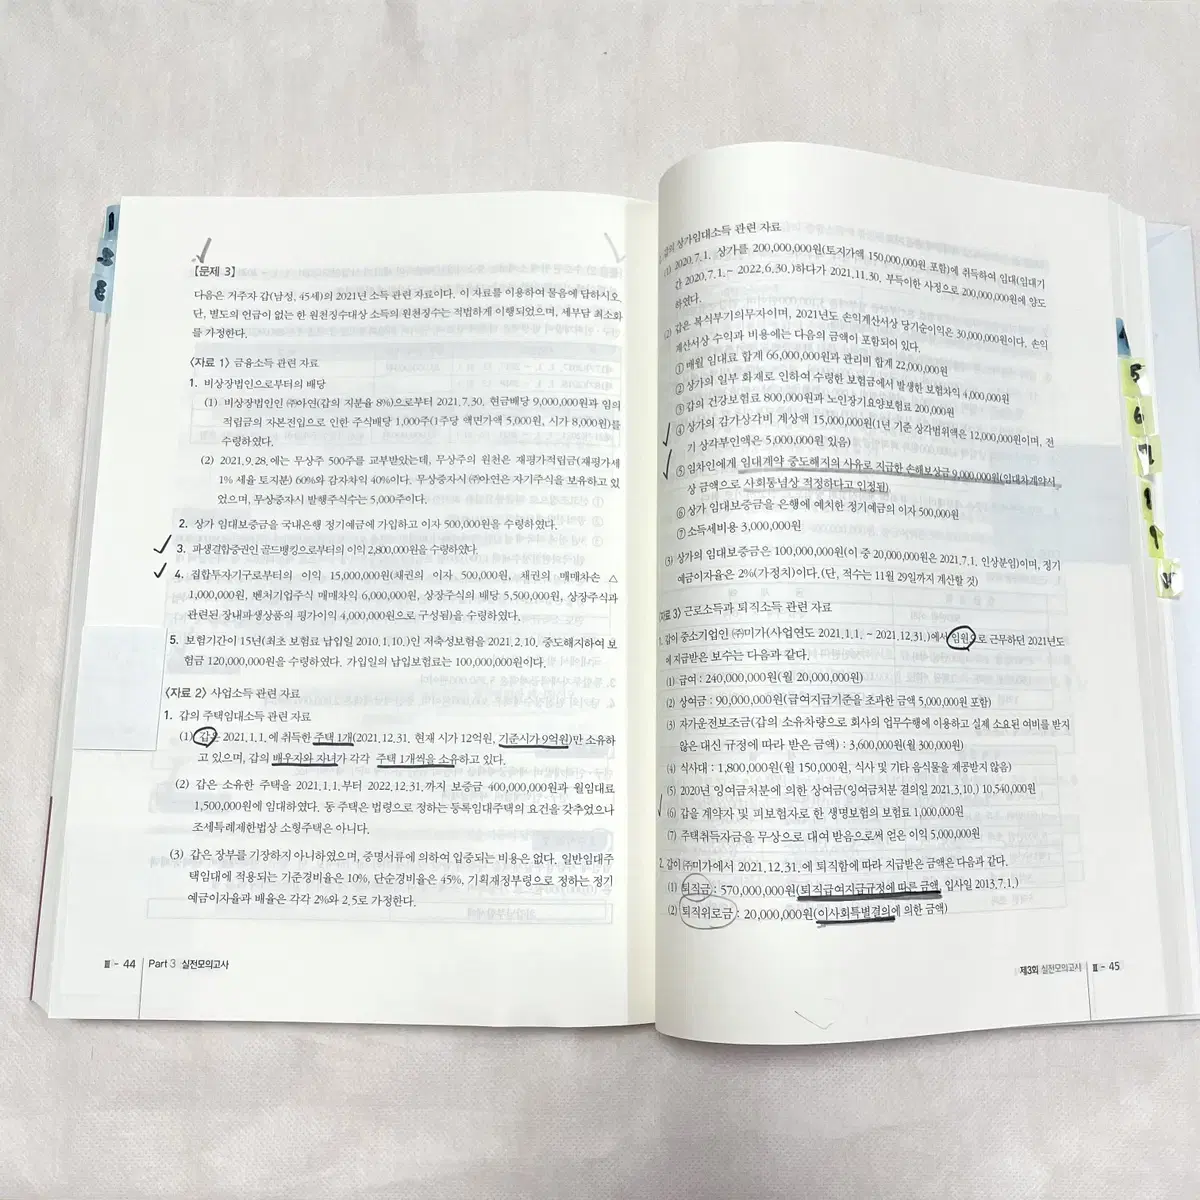 【문제 3】
다음은 거주자 갑(남성, 45세)의 2021년 소득 관련 자료이다. 이 자료를 이용하여 물음에 답하시오.
단, 별도의 언급이 없는 한 원천징수대상 소득의 원천징수는 적법하게 이행되었으며, 세부담 최소화
를 가정한다.
〈자료 1〉 금융소득 관련 자료
1. 비상장법인으로부터의 배당
(1) 비상장법인인 ㈜아연(갑의 지분율 8%)으로부터 2021.7.30. 현금배당 9,000,000원과 임의
적립금의 자본전입으로 인한 주식배당 1,000주(1주당 액면가액 5,000원, 시가 8,000원)를
수령하였다.
(2) 2021.9.28.에는 무상주 500주를 교부받았는데, 무상주의 원천은 재평가적립금(재평가세
1% 세율 토지분) 60%와 감자차익 40%이다. 무상증자시 ㈜아연은 자기주식을 보유하고 있
었으며, 무상증자시 발행주식수는 5,000주이다.
2. 상가 임대보증금을 국내은행 정기예금에 가입하고 이자 500,000원을 수령하였다.
3. 파생결합증권인 골드뱅킹으로부터의 이익 2,800,000원을 수령하였다.
4. 집합투자기구로부터의 이익 15,000,000원(채권의 이자 500,000원, 채권의 매매차손 △
1,000,000원, 벤처기업주식 매매차익 6,000,000원, 상장주식의 배당 5,500,000원, 상장주식과
관련된 장내파생상품의 평가이익 4,000,000원으로 구성됨)을 수령하였다.
5. 보험기간이 15년(최초 보험료 납입일 2010.1.10.)인 저축성보험을 2021.2.10. 중도해지하여 보
험금 120,000,000원을 수령하였다. 가입일의 납입보험료는 100,000,000원이다.
〈자료 2〉 사업소득 관련 자료
1. 갑의 주택임대소득 관련 자료
(1) 갑은 2021.1.1.에 취득한 주택 1개(2021.12.31. 현재 시가 12억원, 기준시가 9억원)만 소유하
고 있으며, 갑의 배우자와 자녀가 각각 주택 1개씩을 소유하고 있다.
(2) 갑은 소유한 주택을 2021.1.1.부터 2022.12.31.까지 보증금 400,000,000원과 월임대료
1,500,000원에 임대하였다. 동 주택은 법령으로 정하는 등록임대주택의 요건을 갖추었으나
조세특례제한법상 소형주택은 아니다.
(3) 갑은 장부를 기장하지 아니하였으며, 증명서류에 의하여 입증되는 비용은 없다. 일반임대주
택임대에 적용되는 기준경비율은 10%, 단순경비율은 45%, 기획재정부령으로 정하는 정기
예금이자율과 배율은 각각 2%와 2.5로 가정한다.
Ⅲ - 44 Part 3 실전모의고사
상가임대소득 관련 자료
(1) 2020.7.1. 상가를 200,000,000원(토지가액 150,000,000원 포함)에 취득하여 임대(임대기
간 2020.7.1.~ 2022.6.30.)하다가 2021.11.30. 부득이한 사정으로 200,000,000원에 양도
하였다.
(2) 갑은 복식부기의무자이며, 2021년도 손익계산서상 당기순이익은 30,000,000원이다. 손익
계산서상 수익과 비용에는 다음의 금액이 포함되어 있다.
① 매월 임대료 합계 66,000,000원과 관리비 합계 22,000,000원
② 상가의 일부 화재로 인하여 수령한 보험금에서 발생한 보험차익 4,000,000원
③ 갑의 건강보험료 800,000원과 노인장기요양보험료 200,000원
④ 상가의 감가상각비 계상액 15,000,000원(1년 기준 상각범위액은 12,000,000원이며, 전
기 상각부인액은 5,000,000원 있음)
⑤ 임차인에게 임대계약 중도해지의 사유로 지급한 손해보상금 9,000,000원(임대차계약서
상 금액으로 사회통념상 적정하다고 인정됨)
⑥ 상가 임대보증금을 은행에 예치한 정기예금의 이자 500,000원
⑦ 소득세비용 3,000,000원
(3) 상가의 임대보증금은 100,000,000원(이 중 20,000,000원은 2021.7.1. 인상분임)이며, 정기
예금이자율은 2%(가정치)이다.(단, 적수는 11월 29일까지 계산할 것)
〈자료 3〉 근로소득과 퇴직소득 관련 자료
1. 갑이 중소기업인 ㈜미가(사업연도 2021.1.1. ~ 2021.12.31.)에서 임원으로 근무하던 2021년도
에 지급받은 보수는 다음과 같다.
(1) 급여 : 240,000,000원(월 20,000,000원)
(2) 상여금 : 90,000,000원(급여지급기준을 초과한 금액 5,000,000원 포함)
(3) 자가운전보조금(갑의 소유차량으로 회사의 업무수행에 이용하고 실제 소요된 여비를 받지
않은 대신 규정에 따라 받은 금액) : 3,600,000원(월 300,000원)
(4) 식사대 : 1,800,000원(월 150,000원, 식사 및 기타 음식물을 제공받지 않음)
(5) 2020년 잉여금처분에 의한 상여금(잉여금처분 결의일 2021.3.10.) 10,540,000원
(6) 갑을 계약자 및 피보험자로 한 생명보험의 보험료 1,000,000원
(7) 주택취득자금을 무상으로 대여 받음으로써 얻은 이익 5,000,000원
2. 갑이 ㈜미가에서 2021.12.31.에 퇴직함에 따라 지급받은 금액은 다음과 같다.
(1) 퇴직금 : 570,000,000원(퇴직급여지급규정에 따른 금액, 입사일 2013.7.1.)
(2) 퇴직위로금 : 20,000,000원(이사회특별결의에 의한 금액)
제3회 실전모의고사 Ⅲ - 45
1
3
5
6
7
1
9